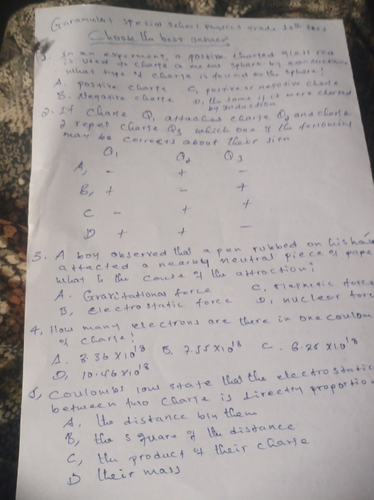 special school physics grade 10th test
Choose the best answer
1. In an experiment, a positive charged glass rod
is used to charge a metal sphere by conduction
what type of charge is found on the sphere?
A. positive charge C, positive or negative charge
B. Negative charge D, the same if it were charged
by induction
2. If charge Q1 attaches charge Q2 and charge
2 repel charge Q3 which one of the following
may be corrects about their sign
Q1 Q2 Q3
A, - + -
B, + - +
C - + +
D + + -
3. A boy observed that a pen rubbed on his hair
attacted a nearby neutral piece of paper
what is the cause of the attraction?
A. Gravitational force C, magnetic force
B, electrostatic force D, nuclear force
4, How many electrons are there in one coulom
of charge?
A. 8.36 x 10^18 B. 7.25 x 10^18 C. 6.25 x 10^18
D, 10.46 x 10^18
5, Coulombs low state that the electrostatic
between two charge is directly proportion
A, the distance b/n them
B, the square of the distance
C, the product of their charge
D their mass